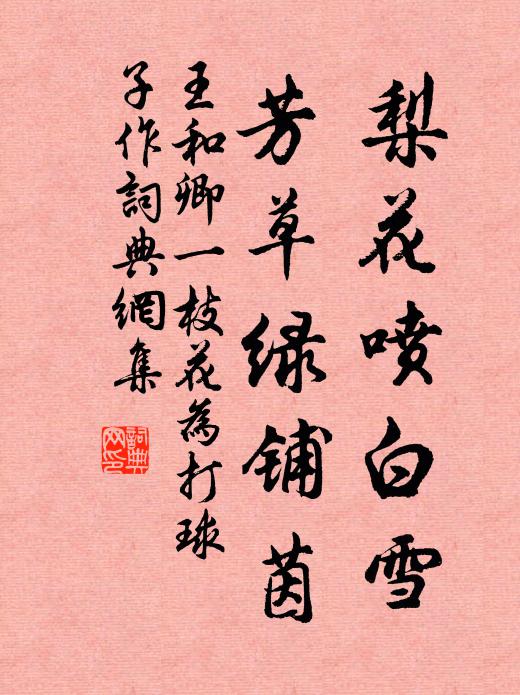 梨花喷白雪
芳草绿铺茵
王和卿一枝花為打球
子作詞典網集
詞典
网印